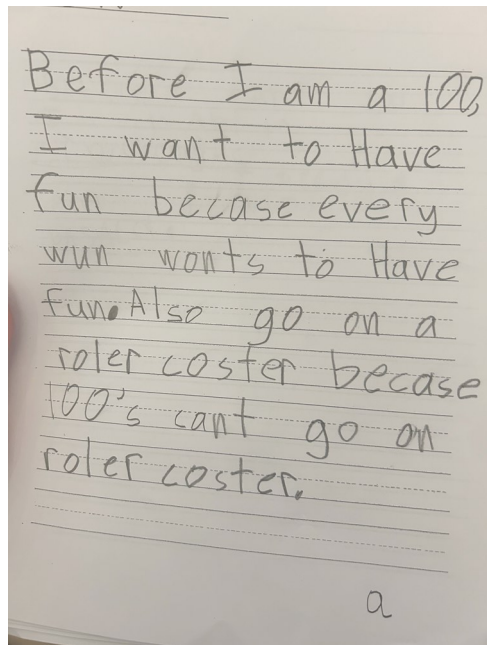 Before I am a 100,
I want to Have
fun becase every
wun wonts to Have
fun. Also go on a
roler coster becase
100's cant go on
roler coster.
a